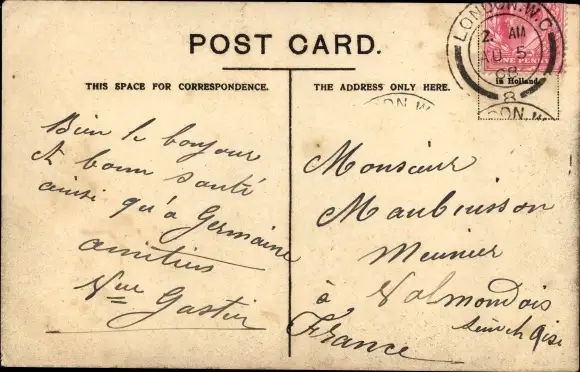 POST CARD.
THIS SPACE FOR CORRESPONDENCE.
THE ADDRESS ONLY HERE.
LONDON. W.C
2. AM
AU 5
08
8
ONE PENNY
in Holland.
DON. W.
ON. W
Bien le bonjour
et bonne santé
ainsi qu'à Germaine
amitiés
Vve Gastier
Monsieur
Maubuisson
Meunier
à Valmondois
Seine et Oise
France